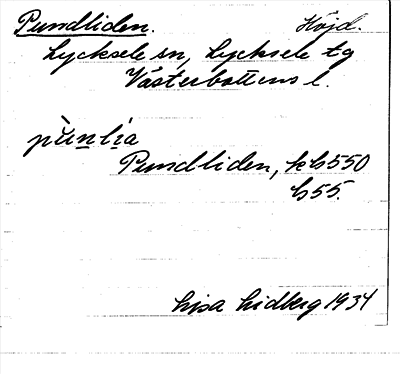 Pundliden. Höjd.
Lycksele sn, Lycksele tg
Västerbottens l.
pùnlia
Pundliden, kb 550
b 55.
Lisa Lidberg 1934